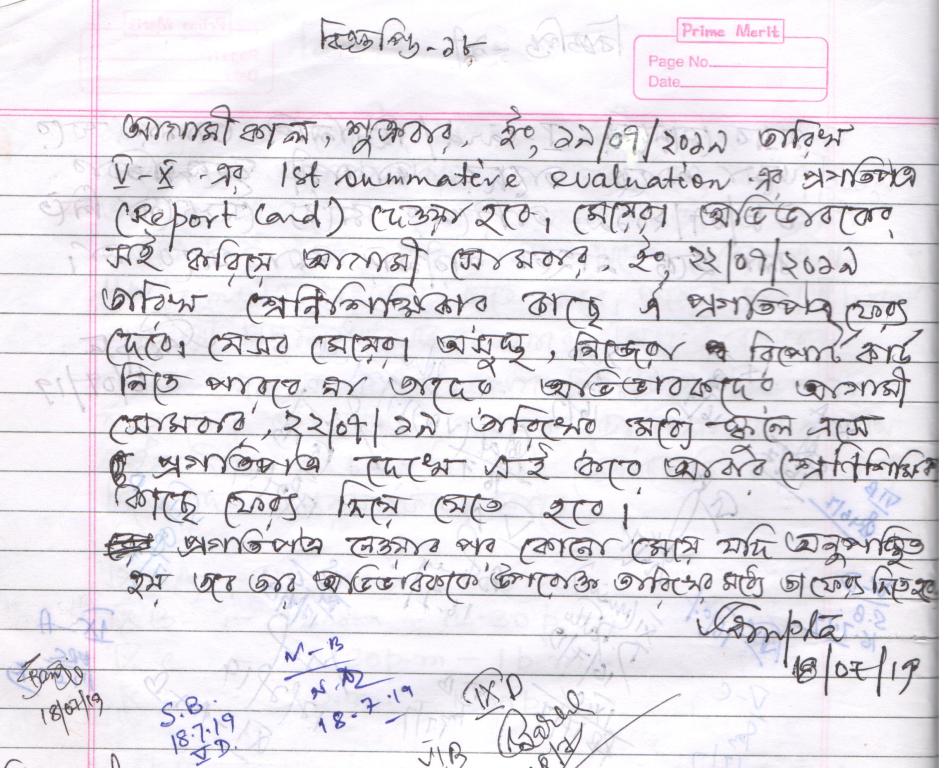 বিজ্ঞপ্তি - ১৮
Prime Merit
Page No.
Date
আগামী কাল, শুক্রবার, ইং ১৯/০৭/২০১৯ তারিখ
V-X এর 1st summative evaluation এর প্রগতিপত্র
(Report Card) দেওয়া হবে। মেয়েরা অভিভাবকের
সই করিয়ে আগামী সোমবার, ইং ২২/০৭/২০১৯
তারিখ শ্রেণিশিক্ষিকার কাছে ঐ প্রগতিপত্র ফেরৎ
দেবে। যেসব মেয়েরা অসুস্থ, নিজেরা রিপোর্ট কার্ড
নিতে পারবে না তাদের অভিভাবকদের আগামী
সোমবার, ২২/০৭/১৯ তারিখের মধ্যে স্কুলে এসে
প্রগতিপত্র দেখে সই করে আবার শ্রেণিশিক্ষিকার
কাছে ফেরৎ দিয়ে যেতে হবে।
প্রগতিপত্র নেওয়ার পর কোনো মেয়ে যদি অনুপস্থিত
হয় তবে তার অভিভাবককে উপরোক্ত তারিখের মধ্যে তা ফেরৎ দিতে হবে
18/07/19
18/07/19
S.B.
18.7.19
V D.
V-B
18-7-19
IX D
VI B